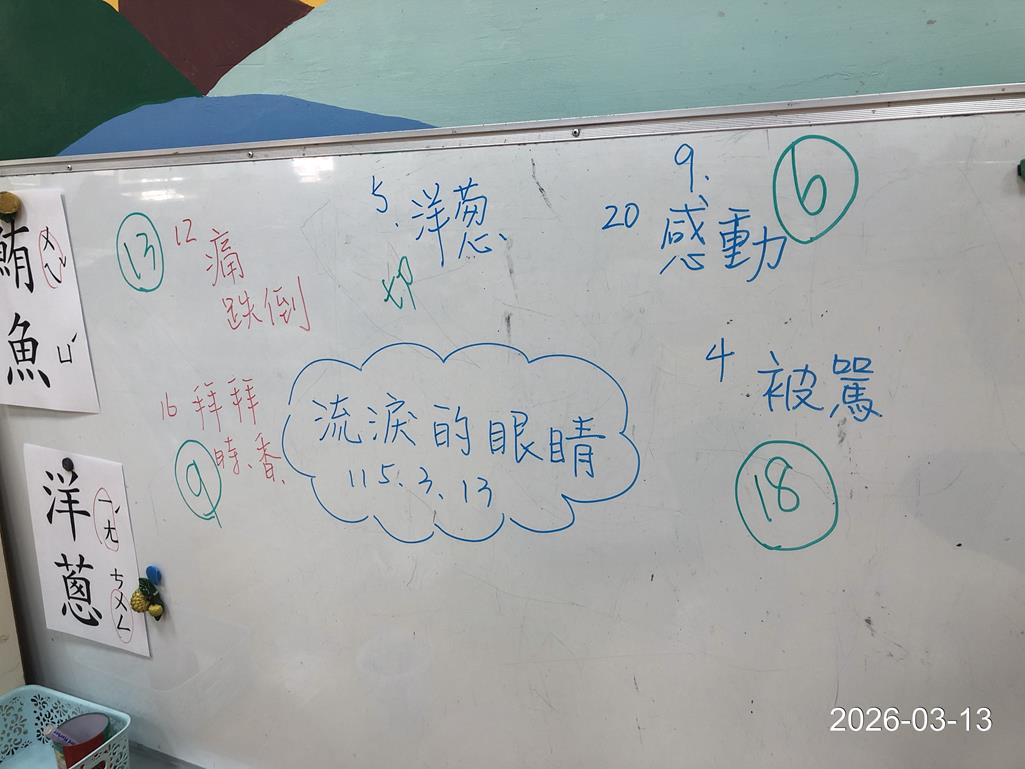 鮪魚
ㄨㄟˇ
ㄩˊ
洋蔥
ㄧㄤˊ
ㄘㄨㄥ
13
12
痛
跌倒
5.
洋蔥
切
9.
20
感動
6
4
被駡
18
16
拜拜
時、香
9
流淚的眼睛
115.3.13
2026-03-13